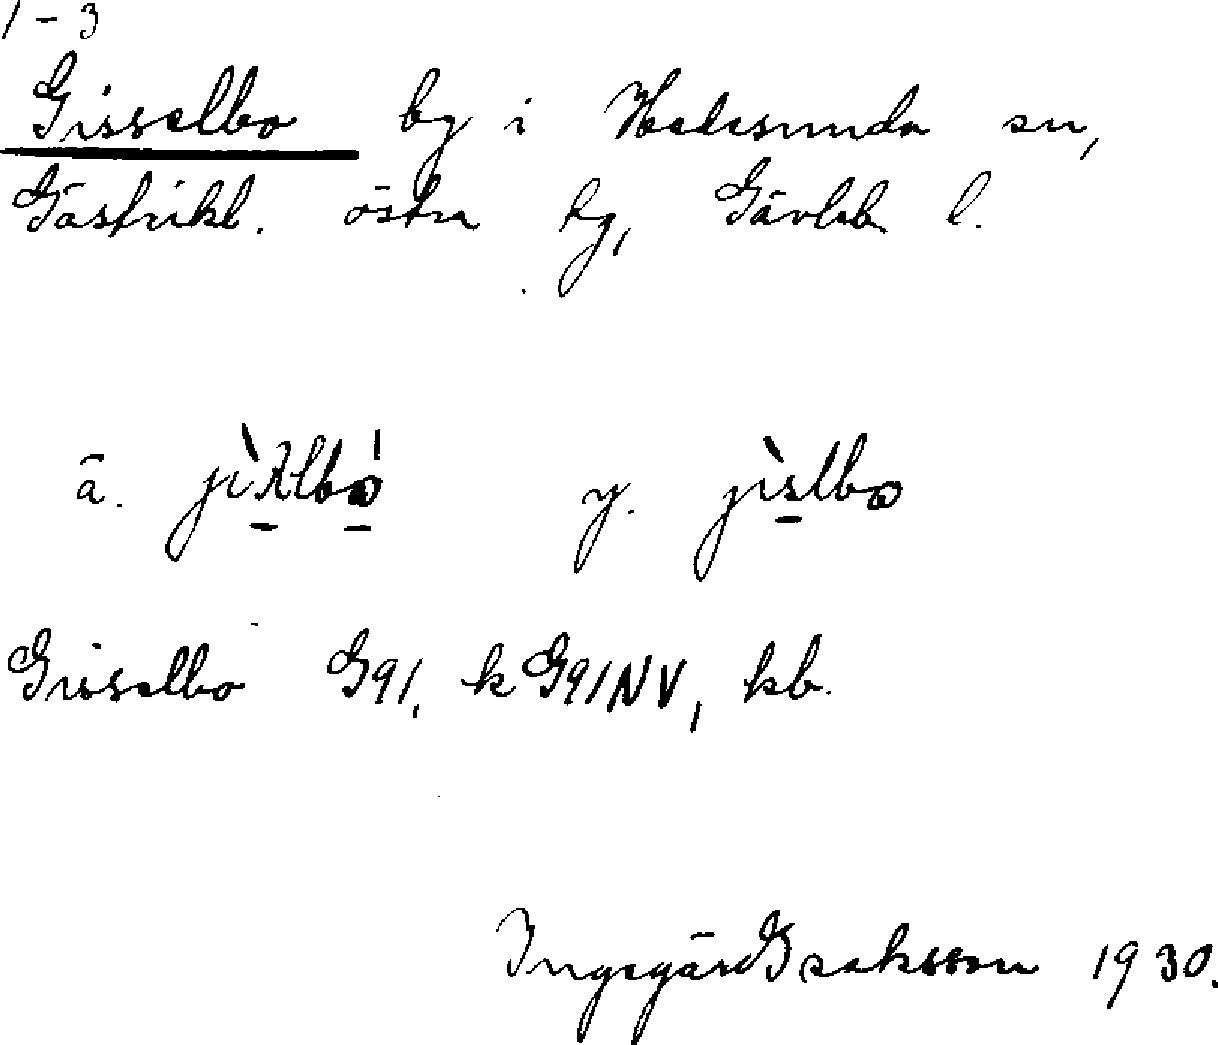 1-3
Gisselbo by i Hedesunda sn,
Gästrikl. östra tg, Gävleb l.
ä. y. jìslbo
Gisselbo G91, k G91NV, kb.
Ingegärd Isaksson 1930.